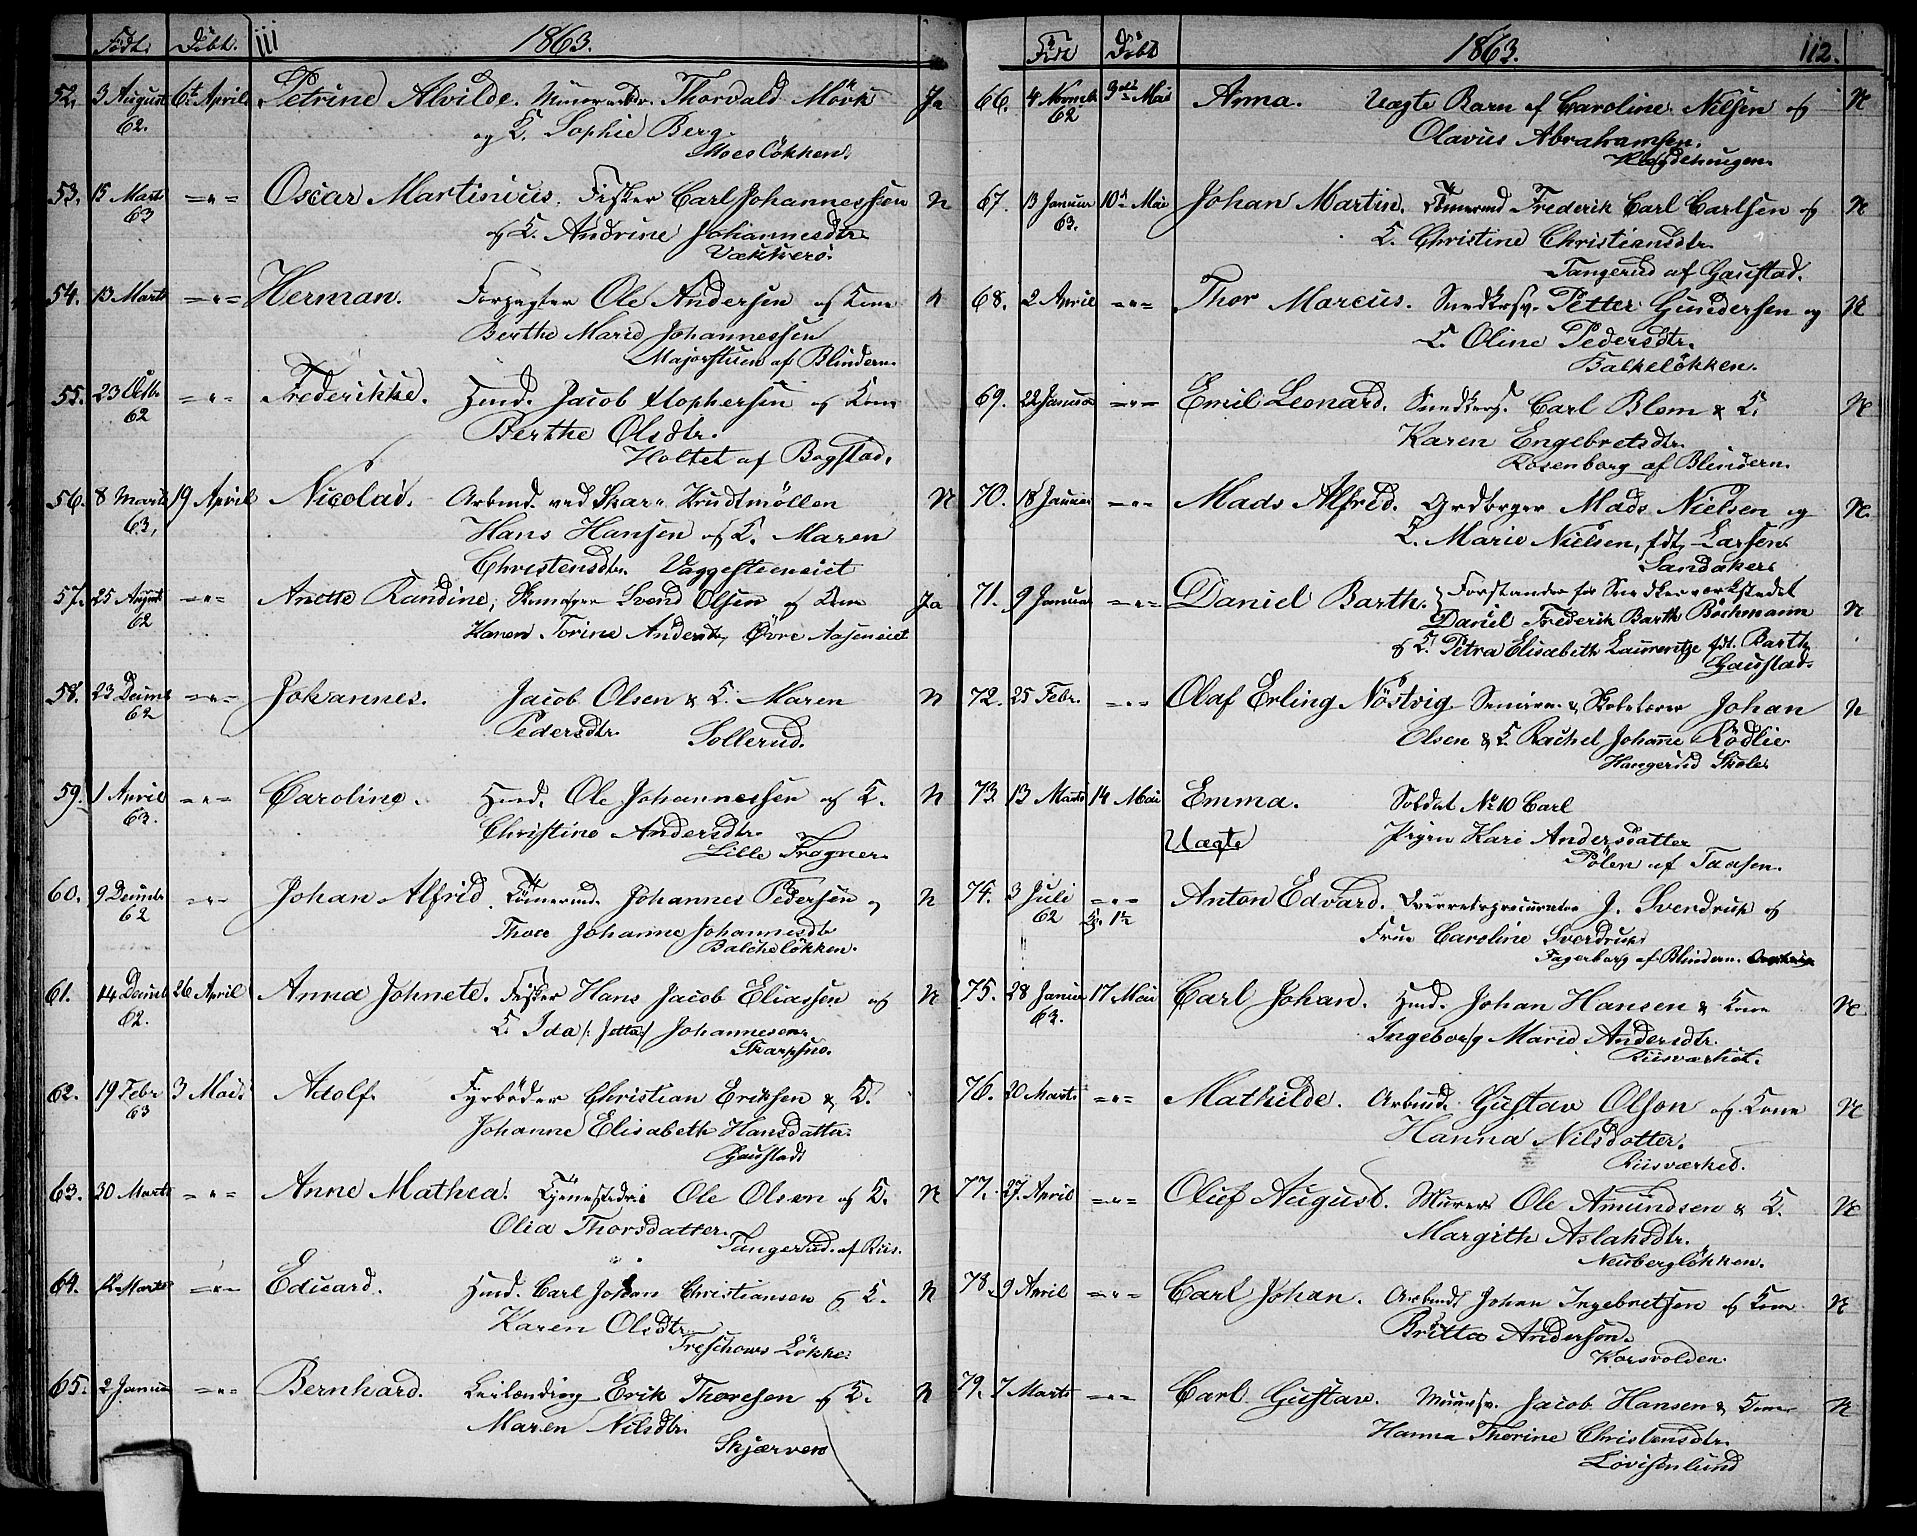 Födt. Döbt. iii 1863.
52. 3 August 6t April Petrine Alvilde. Thorvald Mörk Ja
62. og K. Sophie Berg
Moes Løkken.
53. 15 Marts — " — Oscar Martinius. Fisker Carl Johannessen N
63 og K. Andrine Johannesdtr.
Vækkerö.
54. 13 Marts — " — Herman. Forpagter Ole Andersen og Kone N
Berthe Marie Johannessen
Majorstuen af Blindern.
55. 23 Octb. — " — Frederikke. Huusd. Jacob Klophersen og Kone
62 Berthe Olsdtr.
Holtet af Bogstad.
56. 8 Marts 19 April Nicolai. Arbmd. ved Skar's Krudtmöllen N
63. Hans Hansen og K. Maren
Christensdtr. Vaggesteneiet
57. 25 August — " — Anette Randine, Svend Olsen og Kone Ja
62 Karen Torine Andersdtr, Øvre Aaseneiet
58. 23 Decmb — " — Johannes. Jacob Olsen & K. Maren N
62 Pedersdtr. Sollerud.
59. 1 April — " — Caroline. Huusd. Ole Johannessen og K. N
63. Christine Andersdtr.
Lille Frogner.
60. 9 Decmbr — " — Johan Alfred. Tömermd. Johannes Pedersen og N
62 Thoee Johanne Johannesdt
Balchelökken.
61. 14 Decmb 26 April Anna Johnete. Fisker Hans Jacob Eliassen og N
62. K. Ida /: Jetta :/ Johannesen
Skarpsno.
62. 19 Febr 3 Mai Adolf. Fyrböder Christian Eriksen & K.
63 Johanne Elisabeth Hansdatter.
Gaustad
63. 30 Marts — " — Anne Mathea. Ole Olsen og K. N
Olia Thorsdatter.
Tangerud. af Riis.
64. 12 Marts — " — Edvard. Huusd. Carl Johan Christiansen og K. N
Karen Olsdtr.
Treschows Løkke.
65. 2 Januar — " — Bernhard. Leilænding Erik Thoresen og K. N
Maren Nilsdtr.
Skjærven
Döbt 1863. 112.
66. 4 Novmb 3die Mai Anna. Uægte Barn af Caroline Nilsen og N
62 Olavus Abrahamsen.
67. 13 Januar 10d Mai Johan Martin. Tömermd Frederik Carl Carlsen og N
63. K. Christine Christiansdtr.
Tangerud af Gaustad.
68. 2 April — " — Thor Marcus. Snedkersv. Petter Gundersen og N
K. Oline Pedersdtr.
Balkelökken.
69. 22 Januar — " — Emil Leonard. Snedkers. Carl Blom & K. N
Karen Engebretsdtr.
Rosenborg af Blindern.
70. 18 Januar — " — Mads Alfred. Grdborger Mads Nielsen og N.
K. Marie Nielsen, fdt Larsen.
Sandaker.
71. 9 Januar — " — Daniel Barth. Forstander for Snedkerværkstedet
Daniel Frederik Barth Böchmann N
og K. Petra Elisabeth Laurentze fdt. Barth.
Gaustad.
72. 25 Febr. — " — Olaf Erling Nöstvig Seminr. & Skolelærer Johan N
Olsen & K. Rachel Johanne Rödlie
Hangerud Skole.
73. 13 Marts 14 Mai Emma. Soldat No 10 Carl
Uægte Pigen Kari Andersdatter
Pölen af Taasen.
74. 3 Juli — " — Anton Edvard. Overretsprocurator J. Svendrup og
62 Frue Caroline Sverdrup
Fagerborg af Blindern.
75. 28 Januar 17 Mai Carl Johan. Huusd. Johan Hansen & Kone N
63. Ingeborg Marie Andersdtr.
Riisværket.
76. 20 Marts — " — Mathilde. Arbmd. Gustav Olson og Kone N
Hanna Nilsdotter.
Riisværket.
77. 27. April — " — Oluf August. Murer Ole Amundsen & K. N
Margith Aslaksdtr.
Neuberglökken.
78. 9 April — " — Carl Johan. Arbmd Johan Ingebretsen og Kone N
Britta Anderson.
Korsvolden.
79. 7 Marts — " — Carl Gustav. Muursv. Jacob Hansen & Kone N
Hanna Thorine Christensdtr.
Lovisenlund